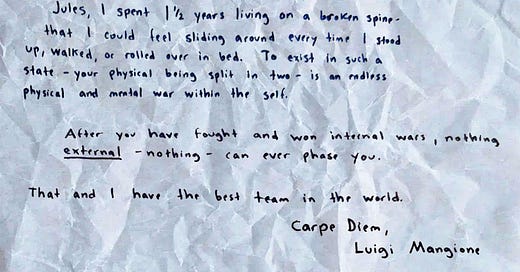 Jules, I spent 1 1/2 years living on a broken spine-
that I could feel sliding around every time I stood
up, walked, or rolled over in bed. To exist in such a
state - your physical being split in two - is an endless
physical and mental war within the self.
After you have fought and won internal wars, nothing
external - nothing - can ever phase you.
That and I have the best team in the world.
Carpe Diem,
Luigi Mangione